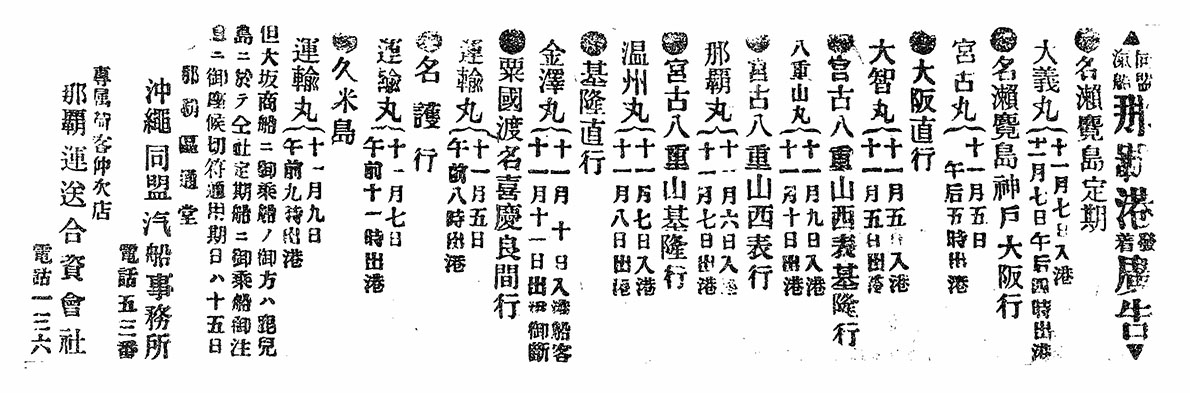 ▲同盟汽船那覇港發着廣告▼
●名瀨鷺島定期
大義丸 十一月七日入港
十一月七日午后四時出港
●名瀨鷺島神戸大阪行
宮古丸 十一月五日
午后五時出港
●大阪直行
大智丸 十一月五日入港
十一月五日出港
●宮古八重山西表基隆行
八重山丸 十一月九日入港
十一月十日出港
●宮古八重山西表行
那覇丸 十一月六日入港
十一月七日出港
●宮古八重山基隆行
温州丸 十一月七日入港
十一月八日出港
●基隆直行
金澤丸 十一月十日入港船客
十一月十一日出港御斷
●粟國渡名喜慶良間行
運輸丸 十一月五日
午前八時出港
●名護行
運輸丸 十一月七日
午前十一時出港
●久米島
運輸丸 十一月九日
午前九時出港
但大坂商船ニ御乘船ノ御方ハ鹿兒
島ニ於テ仝社定期船ニ御乘船御注
意ニ御座候切符通用期日ハ十五日
那覇區通堂
沖繩同盟汽船事務所
電話五三番
專属荷客仲次店
那覇運送合資會社
電話一三六